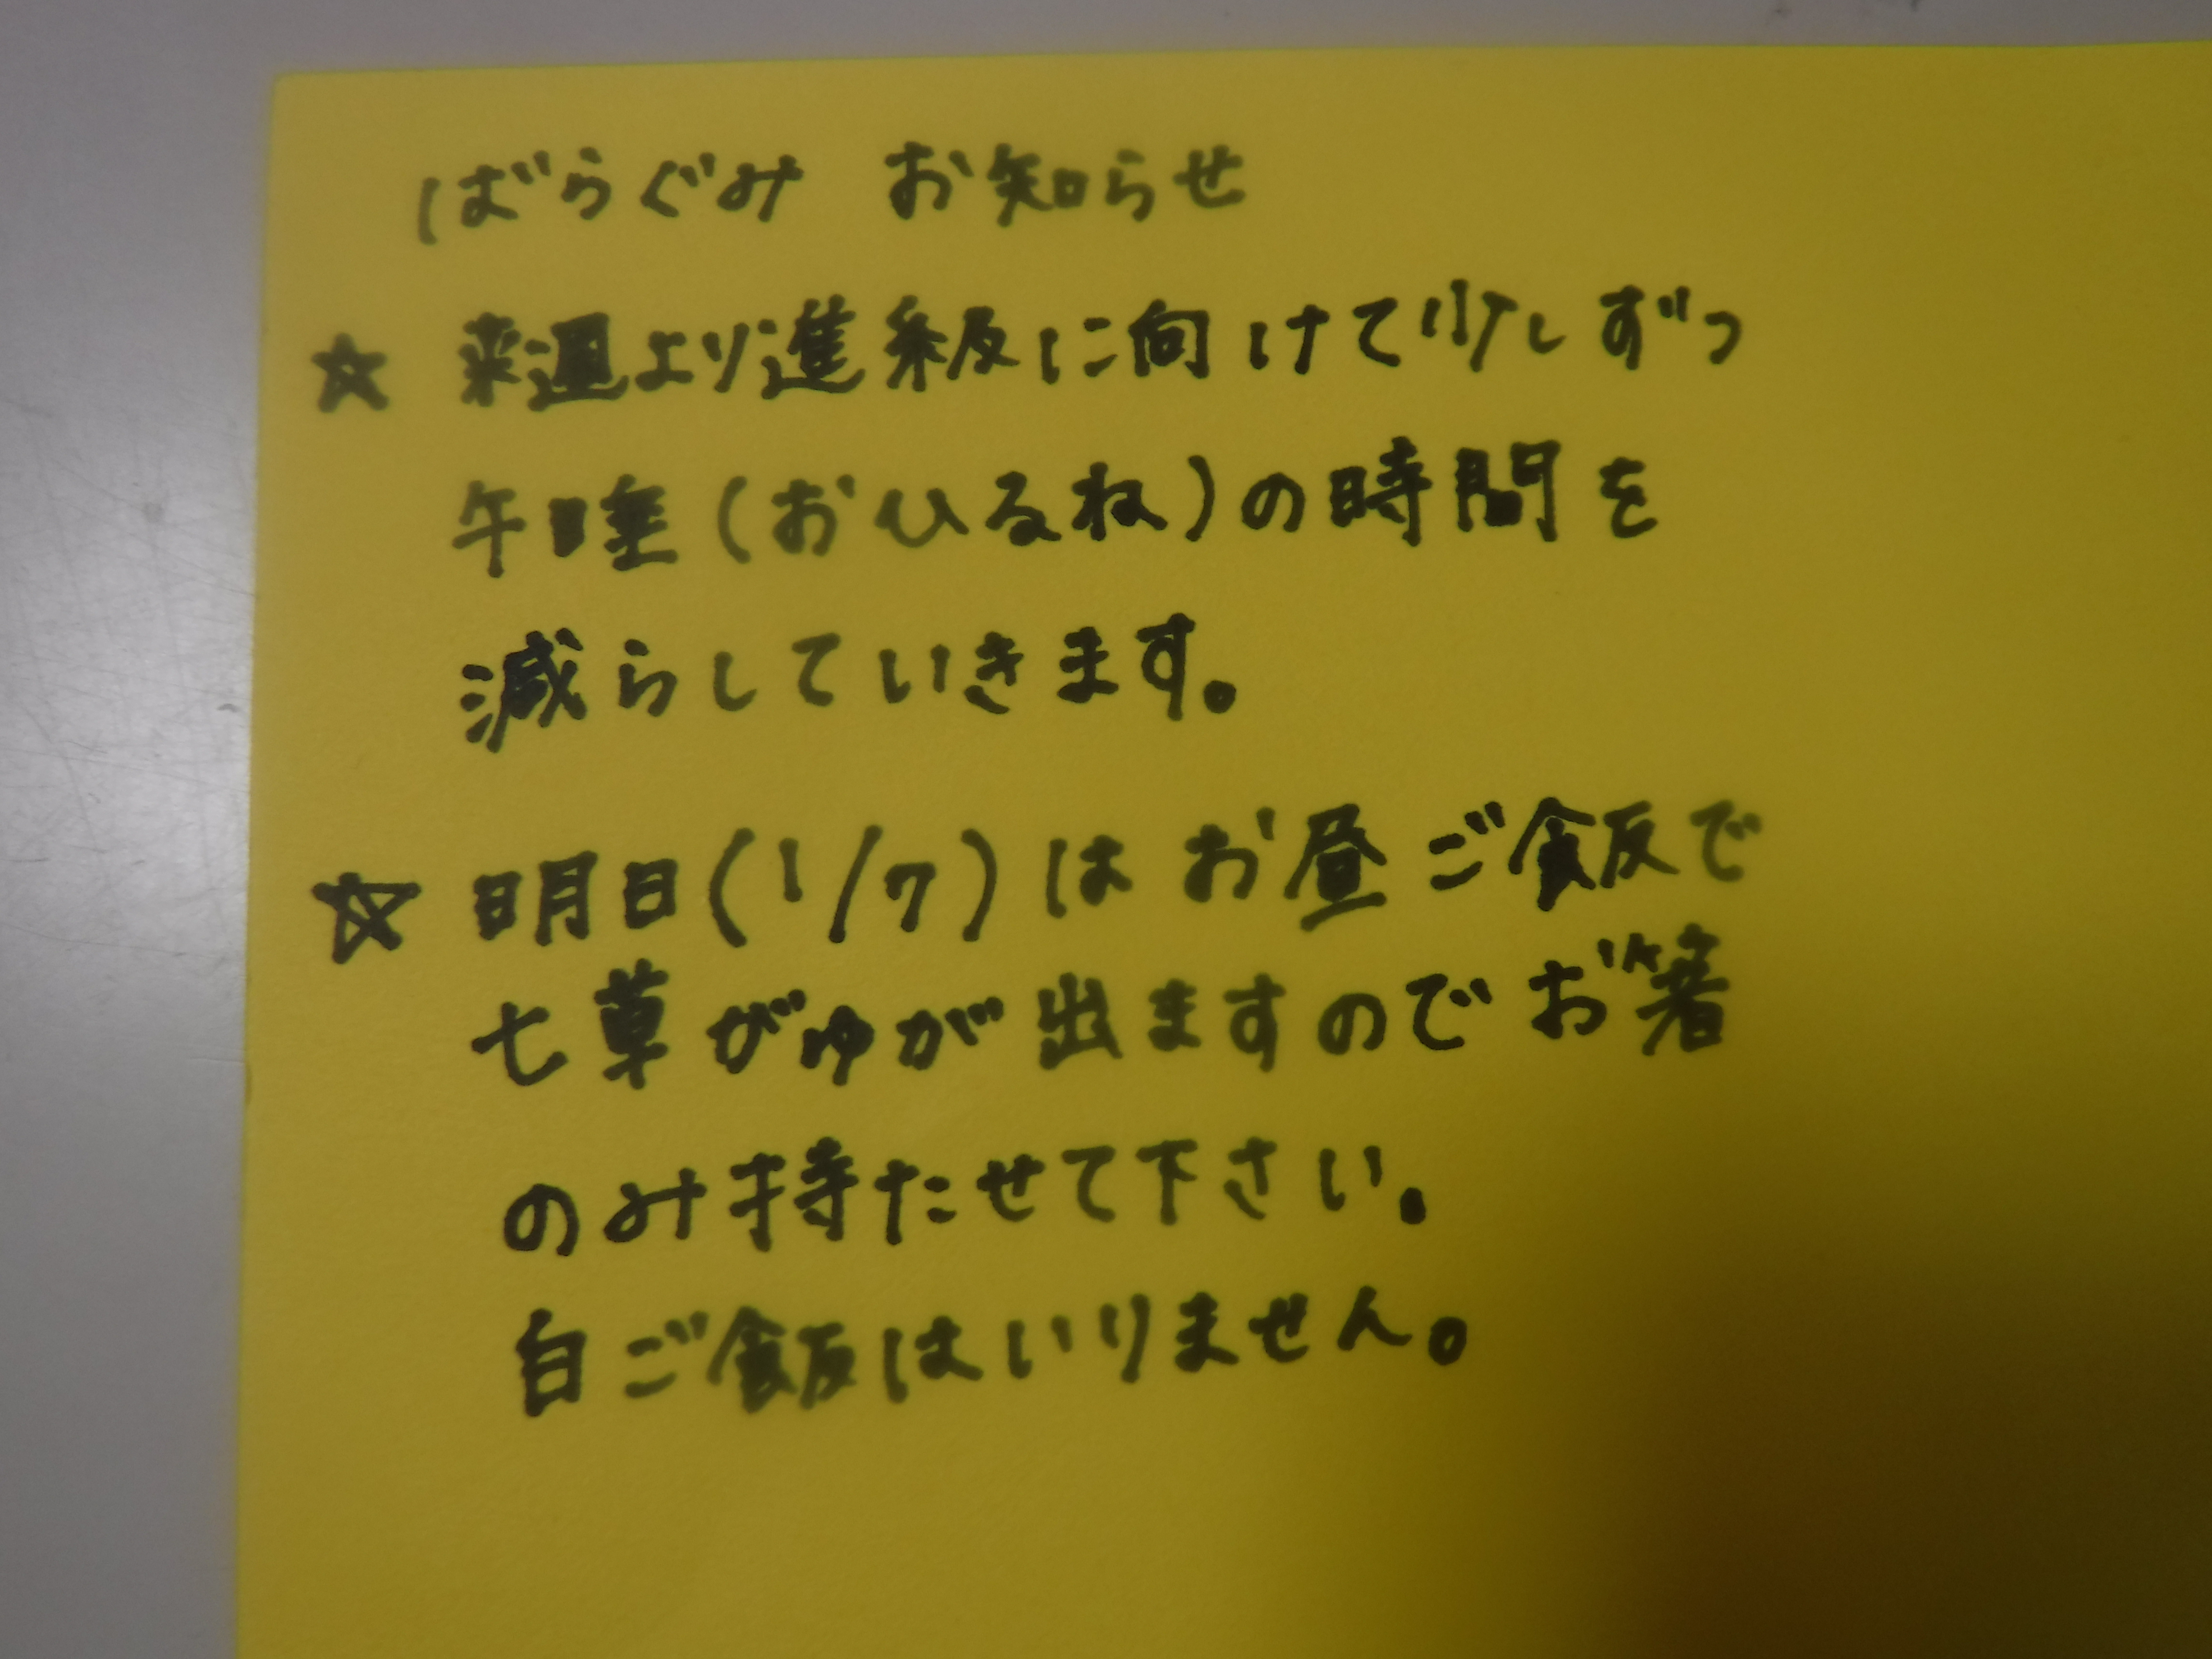 ばらぐみ お知らせ
☆ 来週より進級に向けて少しずつ
午睡(おひるね)の時間を
減らしていきます。
☆ 明日(1/7)はお昼ご飯で
七草がゆが出ますのでお箸
のみ持たせて下さい。
白ご飯はいりません。